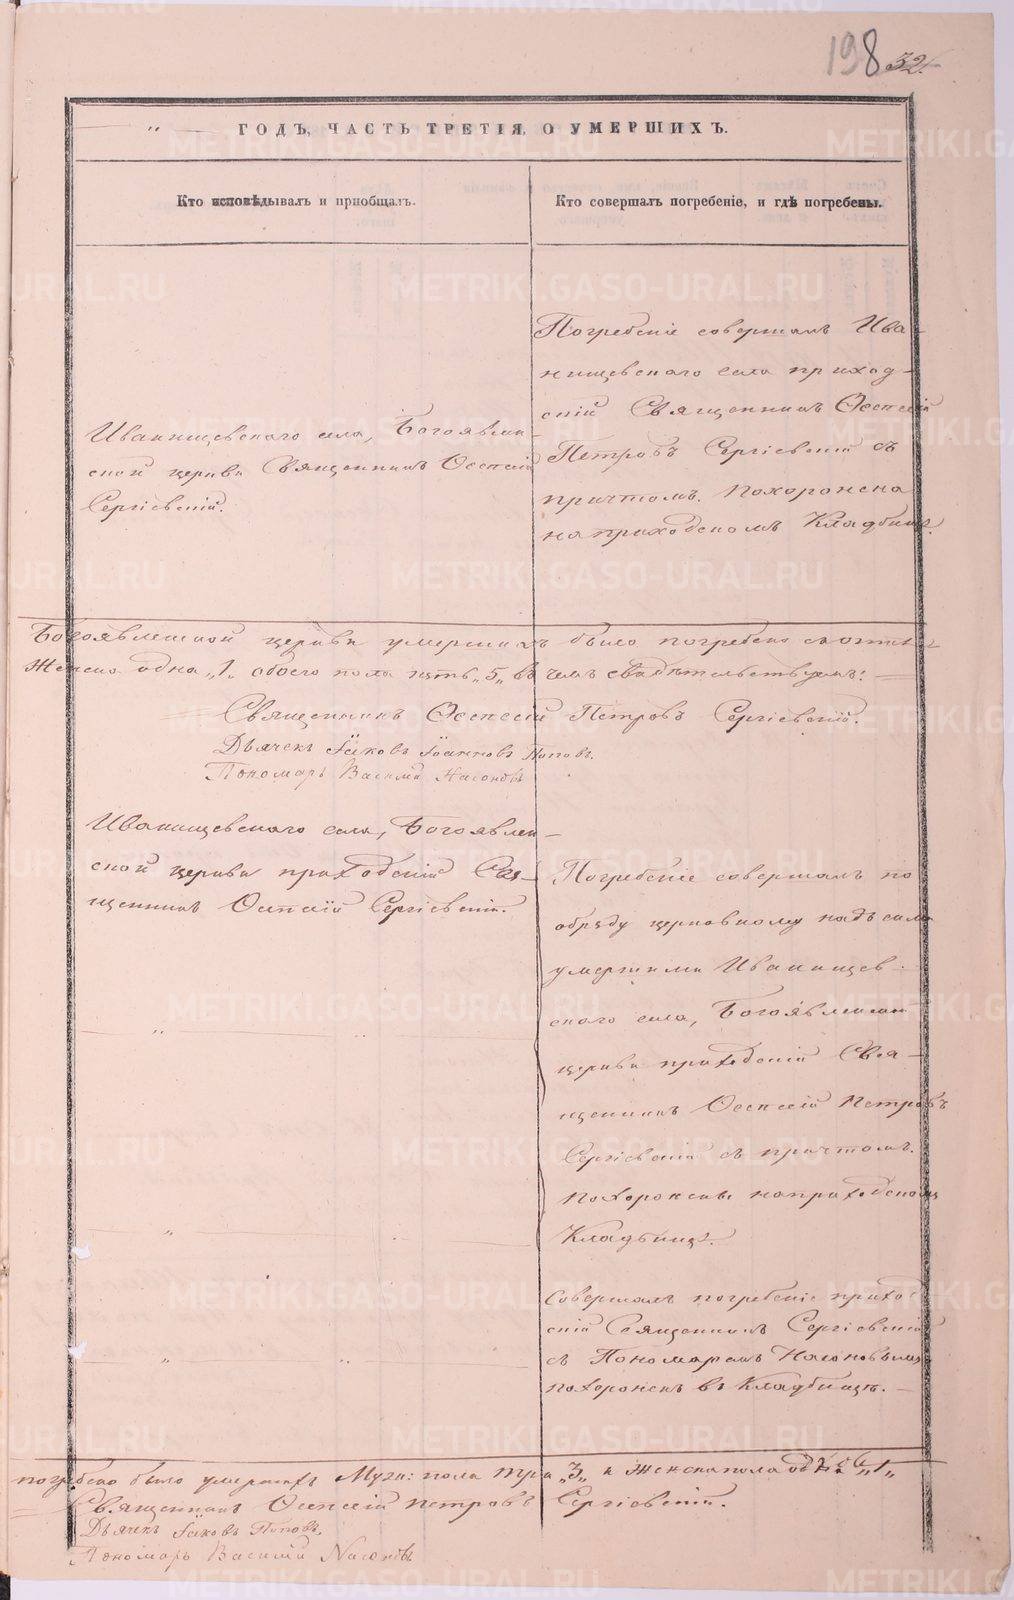 198 32.
" ГОДЪ, ЧАСТЬ ТРЕТІЯ, О УМЕРШИХЪ.
Кто исповѣдывалъ и пріобщалъ.
Кто совершалъ погребеніе, и гдѣ погребены.
Иванищевскаго села, Богоявлен-
ской церкви Священникъ Осепсій
Сергіевскій.
Погребеніе совершалъ Ива-
нищевскаго села приход-
скій Священникъ Осепсій
Петровъ Сергіевскій съ
причтомъ. Похоронена
на приходскомъ Кладбищѣ.
Богоявленской церкви умершихъ было погребено
Женска одна „1„ обоего пола пять „5„ въ чемъ свидѣтельствуемъ:
Священникъ Осепсій Петровъ Сергіевскій.
Дьячекъ Іаковъ Іоанновъ Поповъ.
Пономарь Василій Насоновъ
Иванищевскаго села, Богоявлен-
ской церкви приходскій Свя-
щенникъ Осепсій Сергіевскій.
Погребеніе совершалъ по
обряду церковному надъ сими
умершими Иванищев-
скаго села, Богоявленской
церкви приходскій Свя-
щенникъ Осепсій Петровъ
Сергіевскій съ причтомъ.
Похоронены на приходскомъ
Кладбищѣ.
Совершалъ погребеніе приход-
скій Священникъ Сергіевскій
съ Пономаремъ Насоновымъ
похороненъ въ Кладбищѣ.
погребено было умершихъ Муж: пола три „3„ и Женска пола одна „1„
Священникъ Осепсій Петровъ Сергіевскій.
Дьячекъ Іаковъ Поповъ.
Пономарь Василій Насоновъ
METRIKI.GASO-URAL.RU